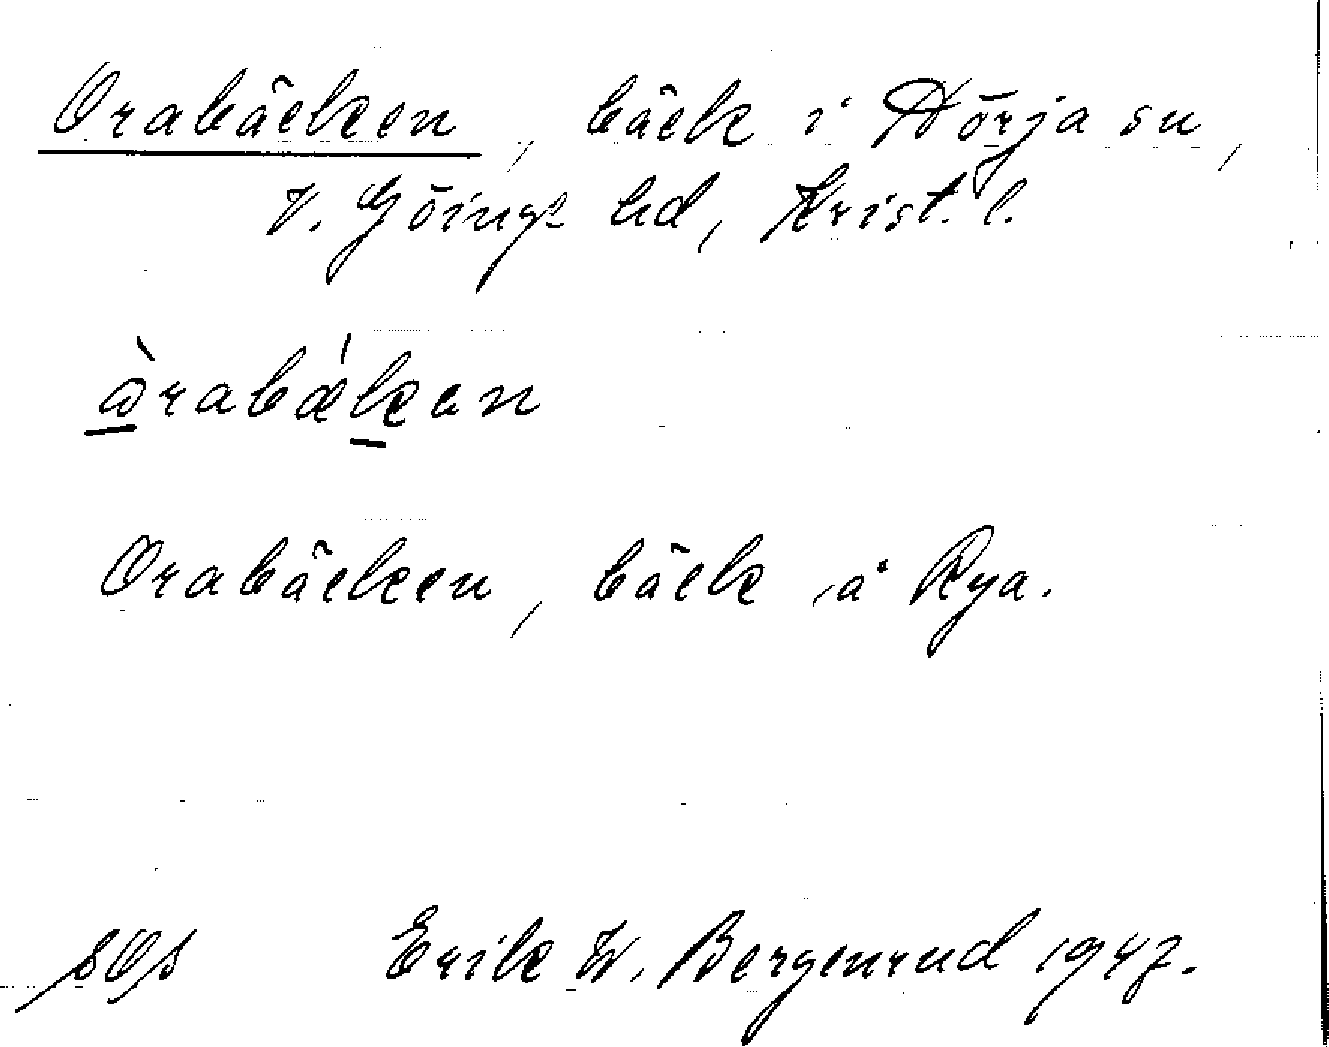 Orabäcken, bäck i Nörja sn,
V. Göinge hd, Krist. l.
òrabǽkan
Orabäcken, bäck å Rya.
Erik W. Bergenrud 1947.